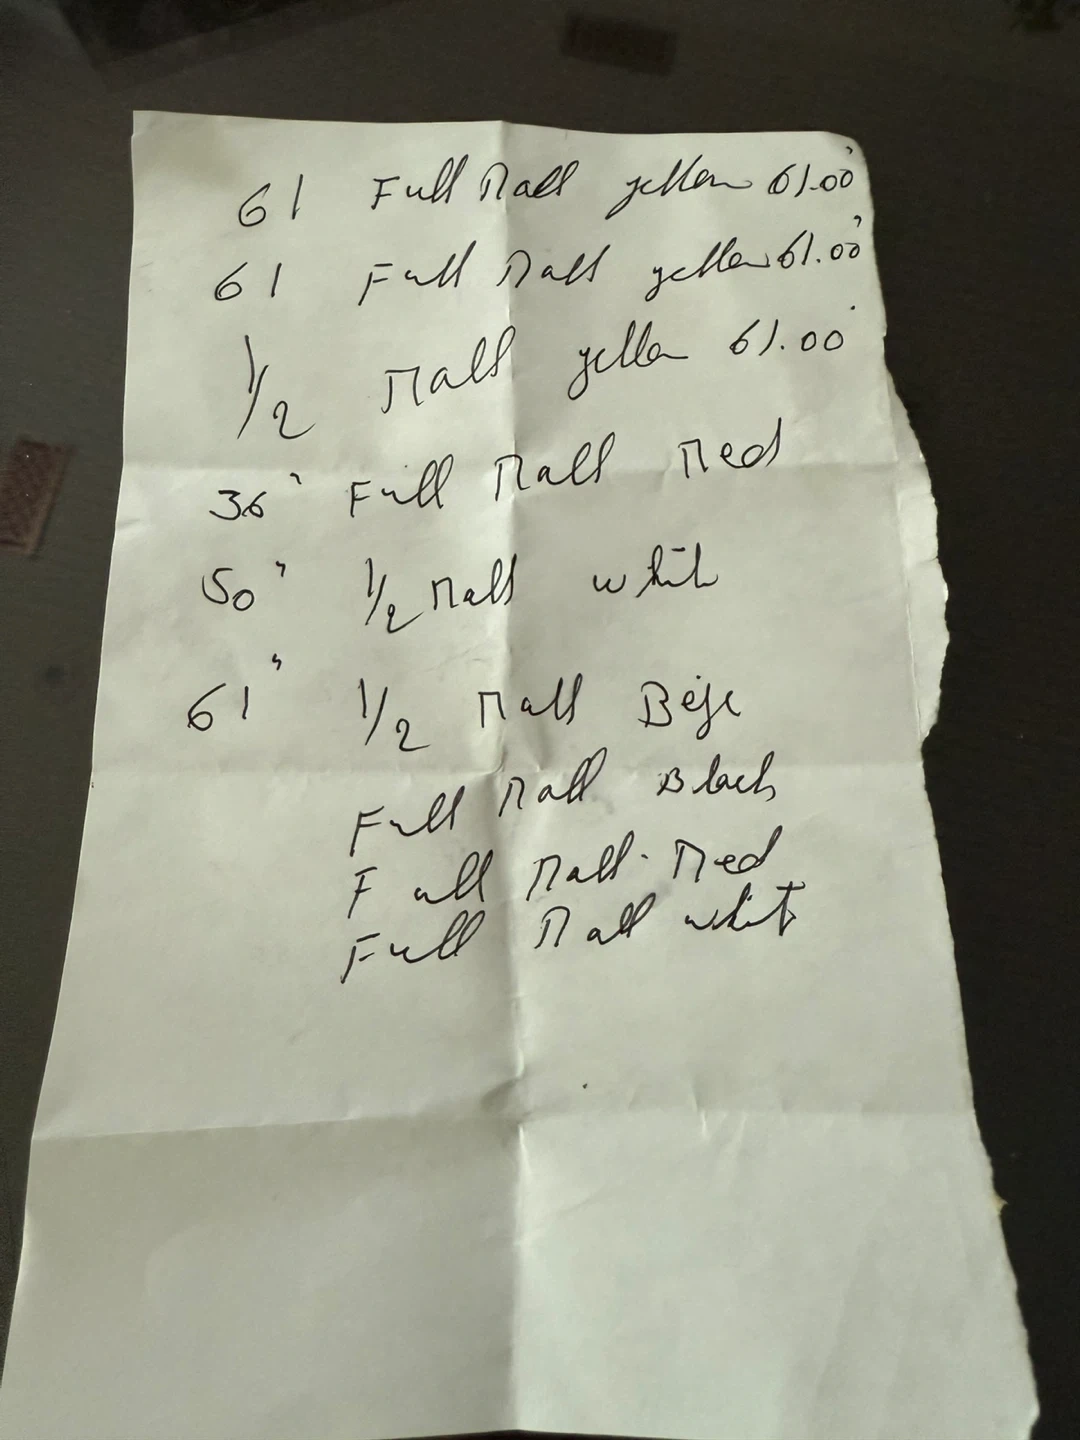 61 Full Mall yellow 61.00"
61 Full Mall yellow 61.00"
1/2 Mall yellow 61.00
36" Full Mall Med
50" 1/2 Mall white
61" 1/2 Mall Beje
Full Mall Black
Full Mall Med
Full Mall white